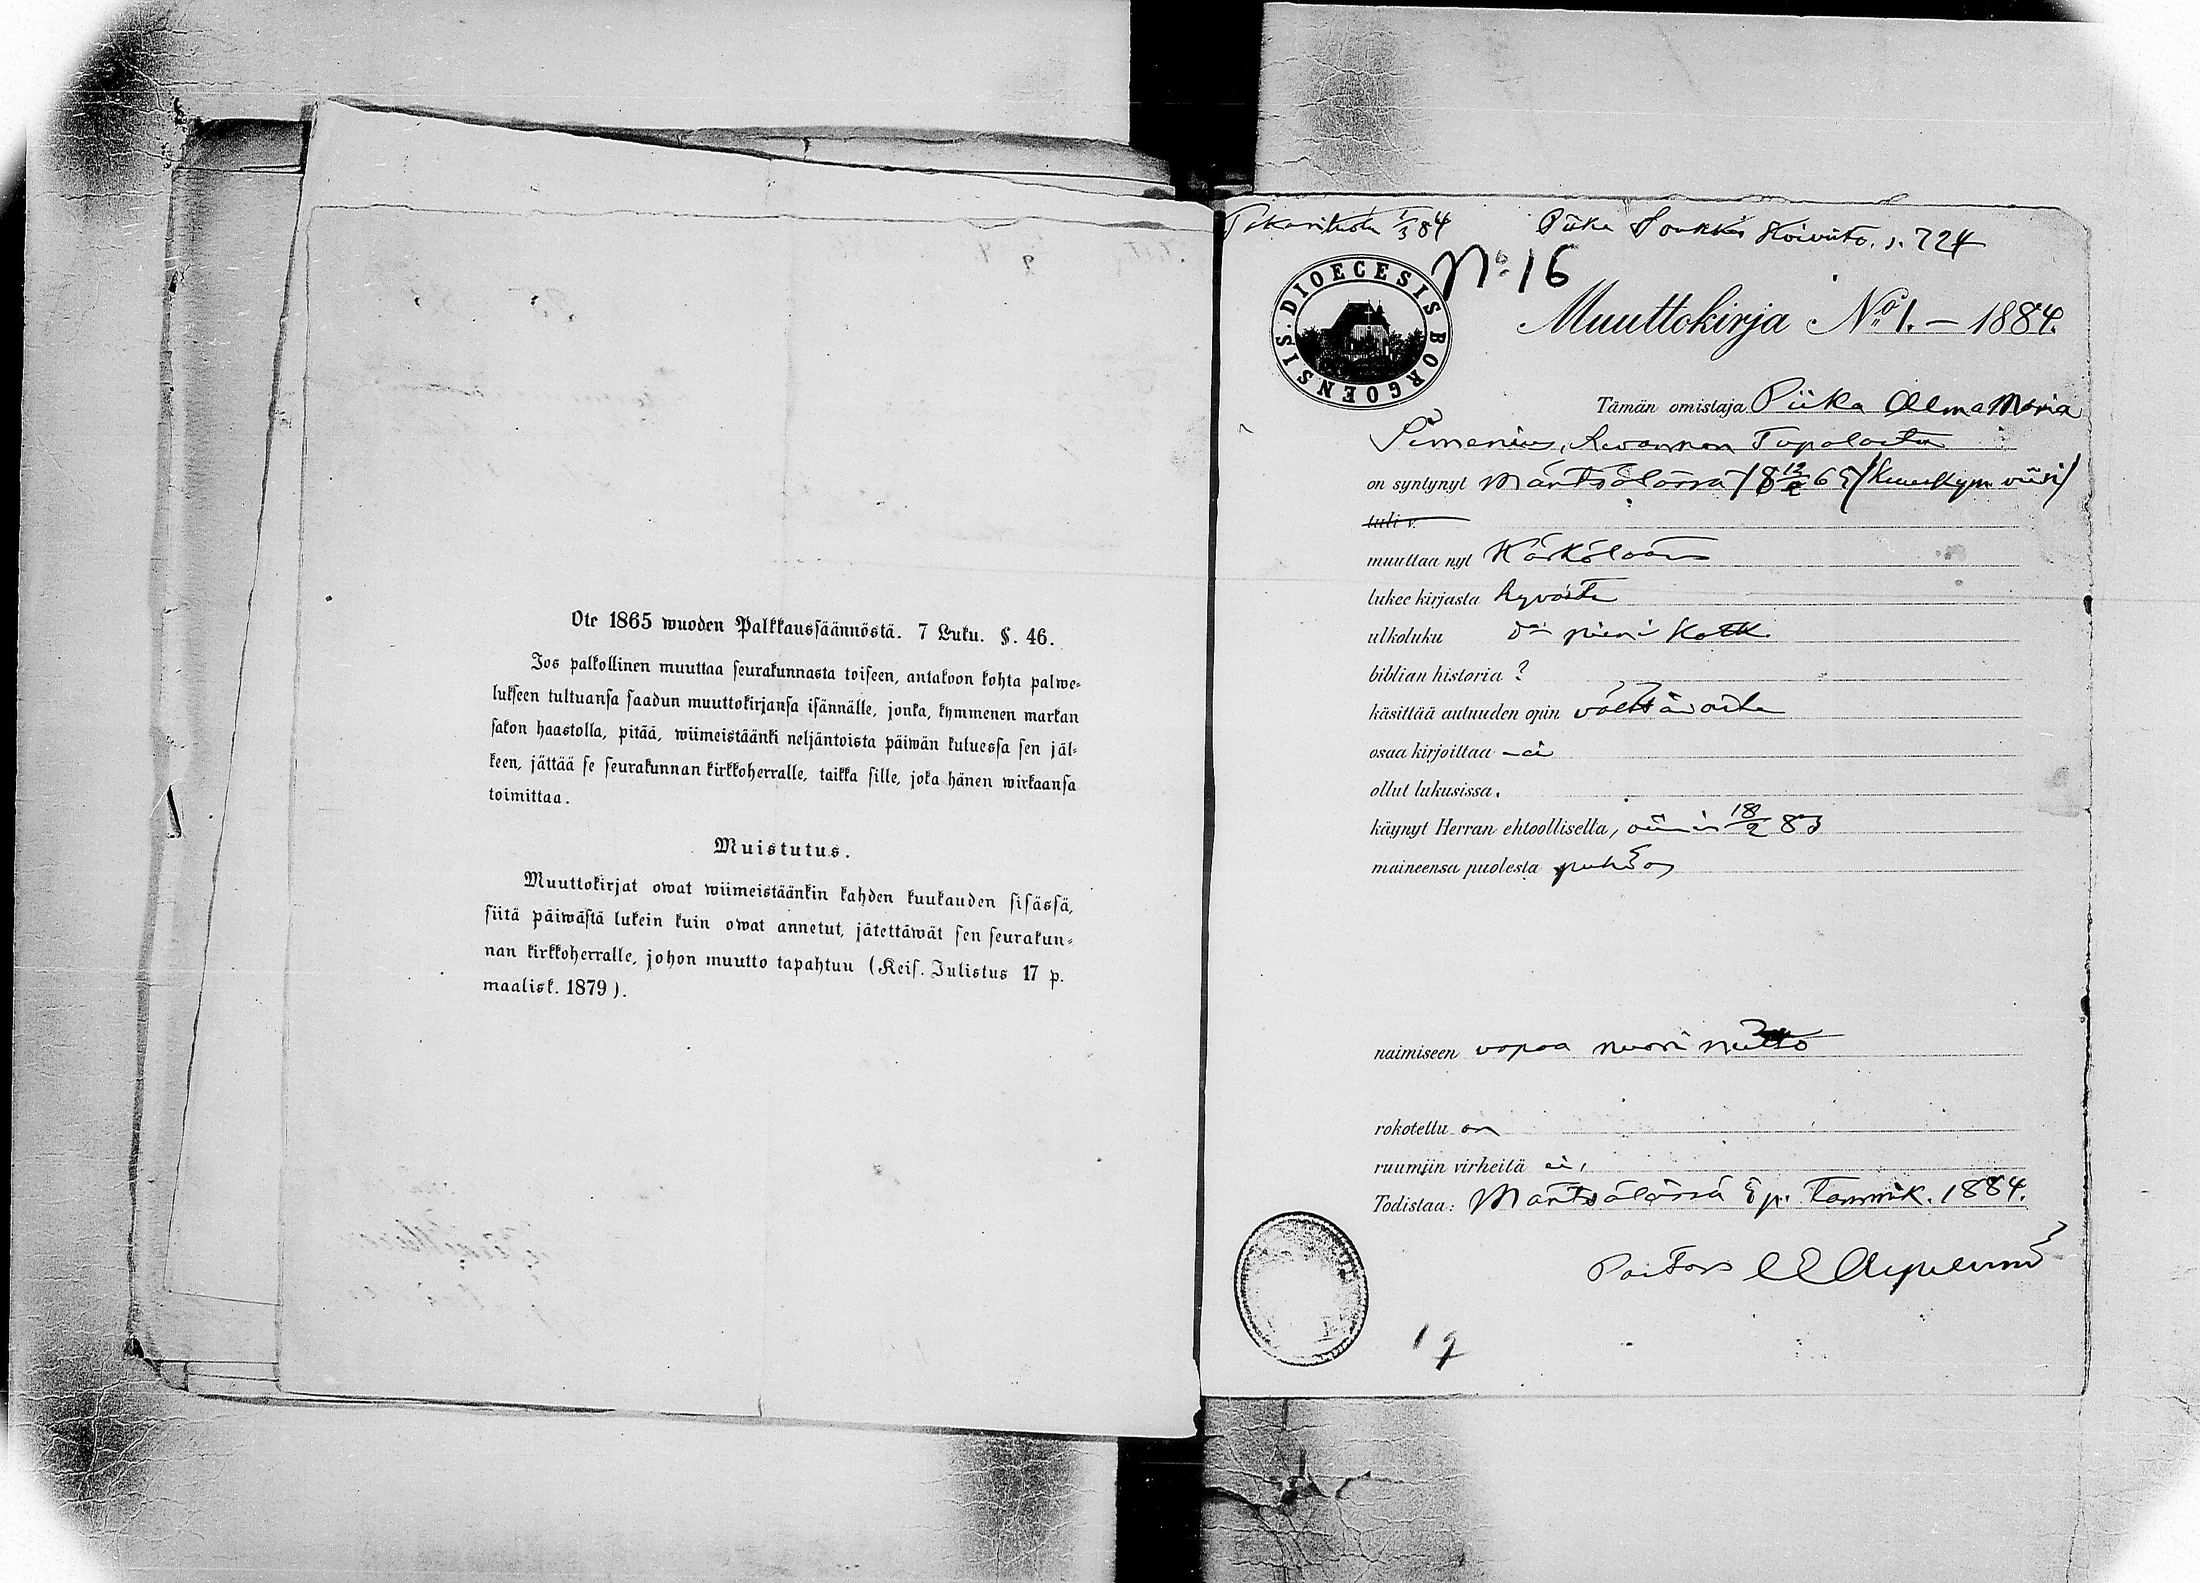 Ote 1865 wuoden Palkkaussäännöstä. 7 Luku. §. 46.
Jos palkollinen muuttaa seurakunnasta toiseen, antakoon kohta palwe-
lukseen tultuansa saadun muuttokirjansa isännälle, jonka, kymmenen markan
sakon haastolla, pitää, wiimeistäänki neljäntoista päiwän kuluessa sen jäl-
keen, jättää se seurakunnan kirkkoherralle, taikka sille, joka hänen wirkaansa
toimittaa.
Muistutus.
Muuttokirjat owat wiimeistäänkin kahden kuukauden sisässä,
siitä päiwästä lukein kuin owat annetut, jätettäwät sen seurakun-
nan kirkkoherralle, johon muutto tapahtuu (Keis. Julistus 17 p.
maalisk. 1879).
1/3 84
Piika Koivisto. s. 724
No 16
DIOECESIS BORGOENSIS.
Muuttokirja No 1. — 1884.
Tämän omistaja Piika Alma Maria
Simenius,
on syntynyt Mäntsälässä 18 12/2 65 /kuuskym viisi/
tuli v.
muuttaa nyt Kärkölään
lukee kirjasta hyvästi
ulkoluku do pieni Katk.
biblian historia ?
käsittää autuuden opin välttävästi
osaa kirjoittaa - ei
ollut lukusissa.
käynyt Herran ehtoollisella, viim 18/2 83
maineensa puolesta puhdas
naimiseen vapaa nuori neito
rokotettu on
ruumiin virheitä ei,
Todistaa: Mäntsälässä 5 p. Tammik. 1884.
Pastori
19